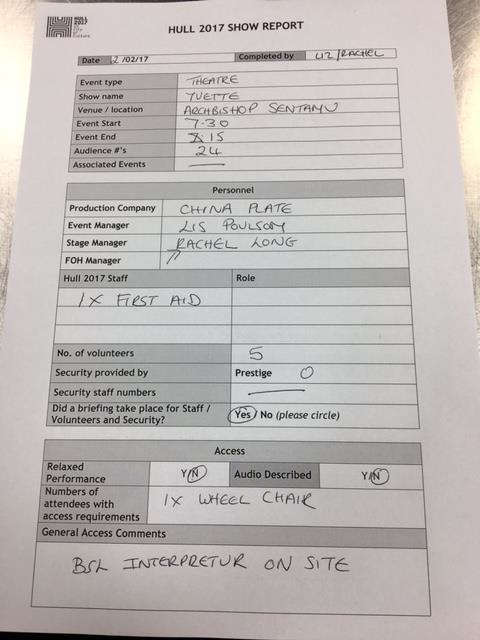 HULL 2017
HULL 2017 SHOW REPORT
Date 2 /02/17 Completed by LIZ/RACHEL
Event type THEATRE
Show name YVETTE
Venue / location ARCHBISHOP SENTAMU
Event Start 7.30
Event End 8.15
Audience #'s 24
Associated Events —
Personnel
Production Company CHINA PLATE
Event Manager LIS POULSOM
Stage Manager RACHEL LONG
FOH Manager "
Hull 2017 Staff Role
1X FIRST AID
No. of volunteers 5
Security provided by Prestige 0
Security staff numbers —
Did a briefing take place for Staff / Yes/ No (please circle)
Volunteers and Security?
Access
Relaxed Performance Y/N Audio Described Y/N
Numbers of attendees with access requirements 1X WHEEL CHAIR
General Access Comments
BSL INTERPRETUR ON SITE